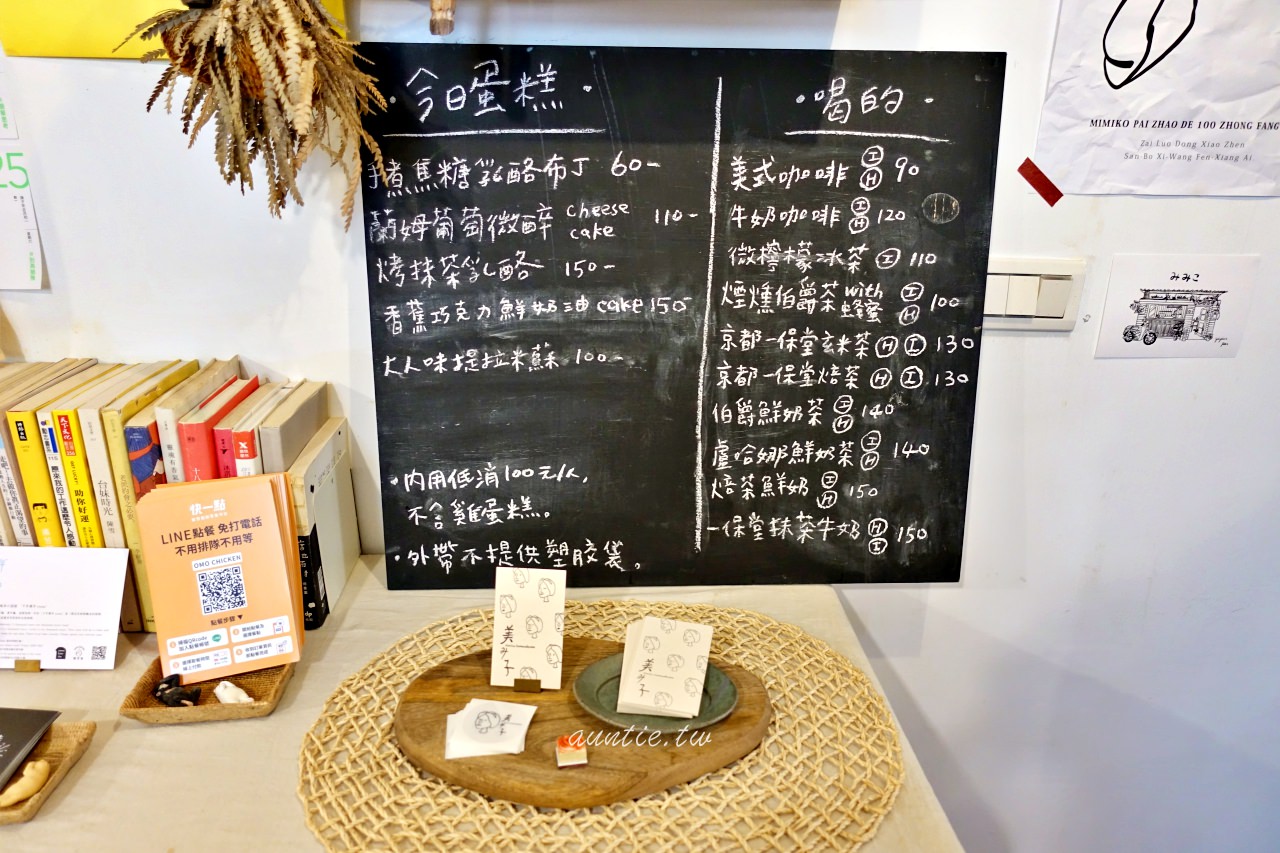 今日蛋糕
手煮焦糖乳酪布丁 60-
蘭姆葡萄微醉 cheese cake 110-
烤抹茶乳酪 150-
香蕉巧克力鮮奶油 cake 150
大人味提拉米蘇 100-
·內用低消100元/人,
不含雞蛋糕。
·外帶不提供塑胶袋。
·喝的·
美式咖啡 Ⓘ Ⓗ 90
牛奶咖啡 Ⓘ Ⓗ 120
微檸檬冰茶 Ⓘ 110
煙燻伯爵茶 with 蜂蜜 Ⓘ Ⓗ 100
京都一保堂玄米茶 Ⓗ Ⓘ 130
京都一保堂焙茶 Ⓗ Ⓘ 130
伯爵鮮奶茶 Ⓘ Ⓗ 140
盧哈娜鮮奶茶 Ⓘ Ⓗ 140
焙茶鮮奶 Ⓘ Ⓗ 150
一保堂抹茶牛奶 Ⓗ Ⓘ 150
MIMIKO PAI ZHAO DE 100 ZHONG FANG
Zai Luo Dong Xiao Zhen
San Bo Xi-Wang Fen-Xiang Ai
みみこ
25
快一點
LINE點餐 免打電話
不用排隊不用等
OMO CHICKEN
點餐步驟▼
台妹時光
助你好運
美み子
美み子
auntie.tw